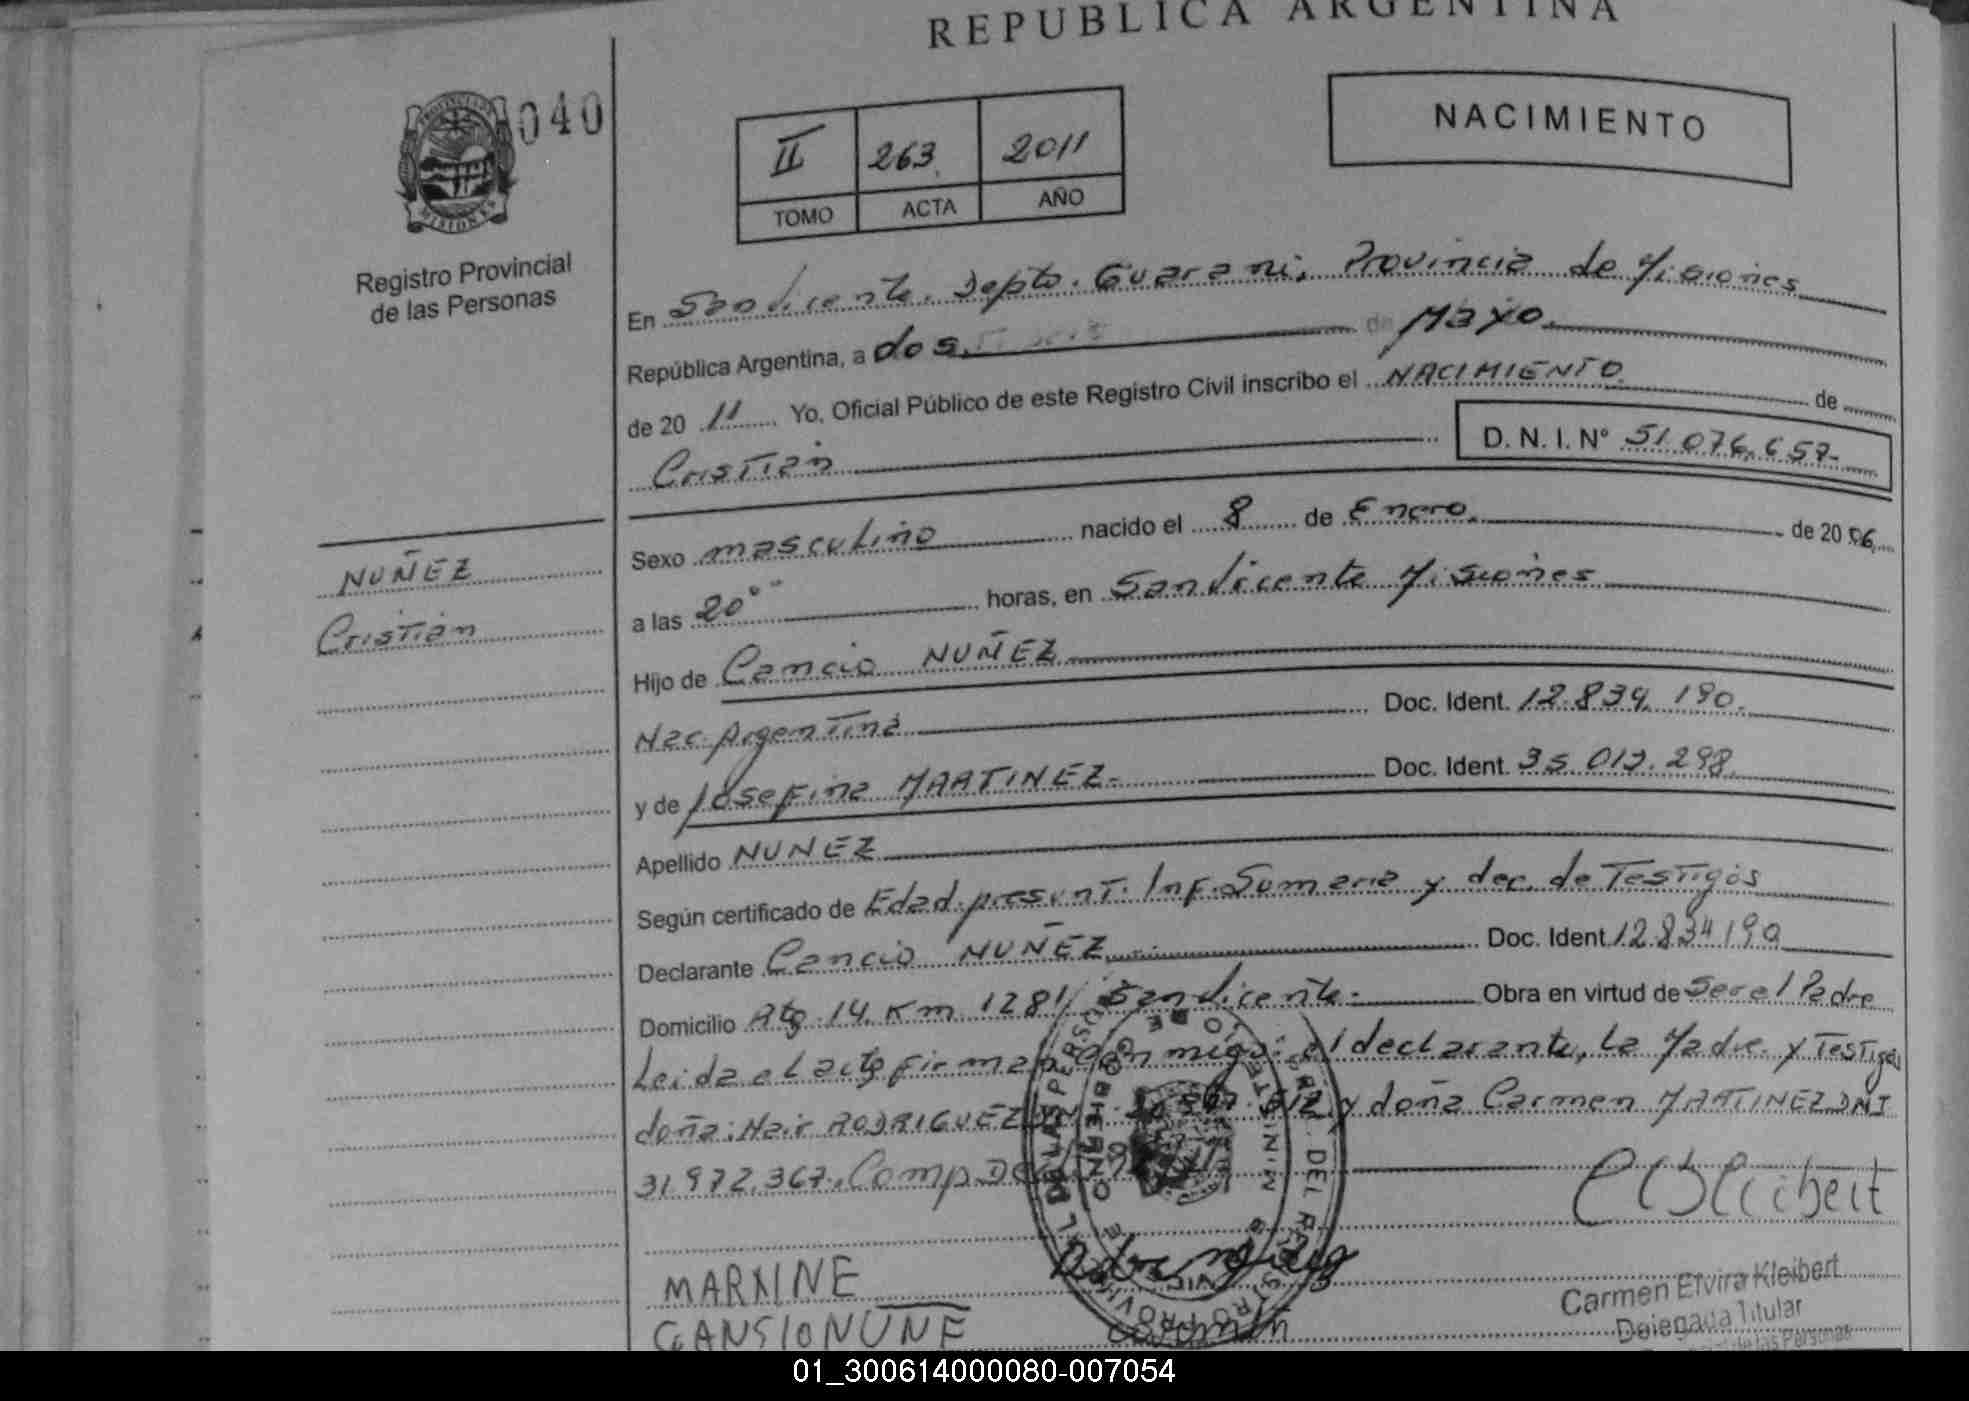 REPUBLICA ARGENTINA
040
PROVINCIA DE
MISIONES
Registro Provincial
de las Personas
II 263 2011
TOMO ACTA AÑO
NACIMIENTO
En San Vicente. Depto. Guarani, Provincia de Misiones
República Argentina, a dos de Mayo.
de 20 11 Yo, Oficial Público de este Registro Civil inscribo el NACIMIENTO de
Cristian
D. N. I. Nº 51.076.657-
NUÑEZ
Cristian
Sexo masculino nacido el 8 de Enero. de 2006
a las 20°° horas, en San Vicente Misiones
Hijo de Cancio NUÑEZ
Nac. Argentina Doc. Ident. 12.834.190.
y de Josefina MARTINEZ.- Doc. Ident. 35.013.298
Apellido NUÑEZ
Según certificado de Edad presunt. Inf. Sumaria y dec. de Testigos
Declarante Cancio NUÑEZ Doc. Ident 12.834190
Domicilio Rta 14 Km 1281 San Vicente.- Obra en virtud de Ser el Padre
Leida el acta firman conmigo: el declarante, la Madre y Testigos
doña: Nair RODRIGUEZ y doña Carmen MARTINEZ DNI
31.972.367. Comp.
MARNINE
CANSIONUNE
Carmen Elvira Kleibert
Delegada Titular
de las Personas
01_300614000080-007054